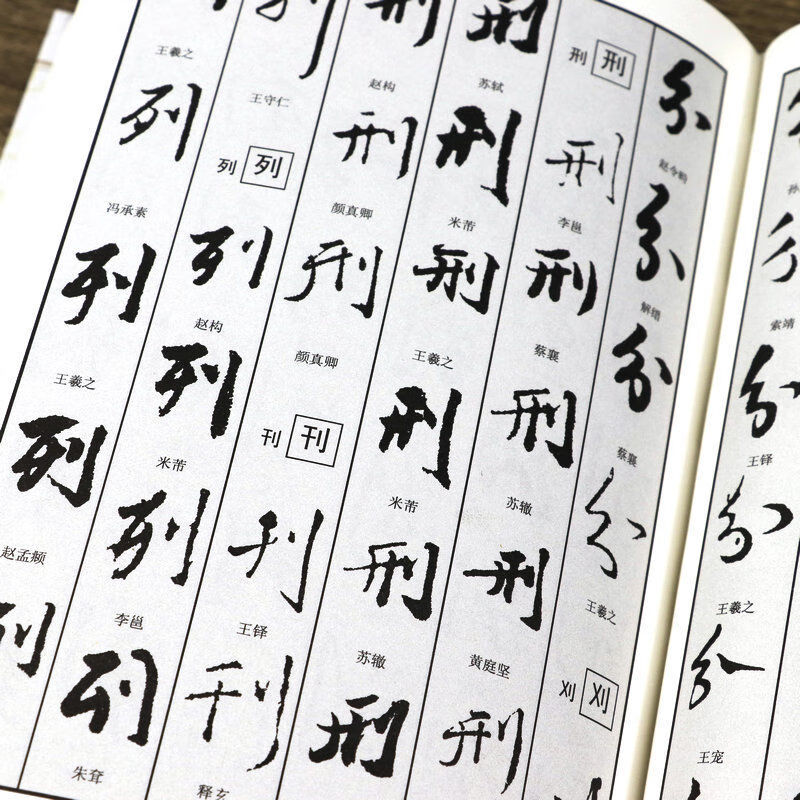 分
解缙
分
蔡襄
分
王羲之
分
刈 刈
刑 刑
刑
李邕
刑
蔡襄
刑
苏辙
刑
黄庭坚
刑
刑
苏轼
刑
米芾
刑
王羲之
刑
米芾
刑
苏辙
刑
赵构
刑
颜真卿
刑
颜真卿
刊 刊
刊
王铎
刊
释玄
王守仁
列 列
列
赵构
列
米芾
列
李邕
列
朱耷
王羲之
列
冯承素
列
王羲之
列
赵孟頫
列
索靖
分
王铎
分
王羲之
分
王宠